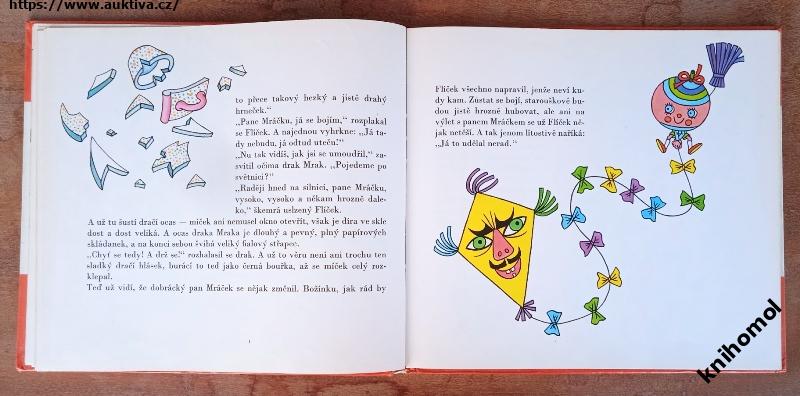 https://www.auktiva.cz/
to přece takový hezký a jistě drahý
hrneček.“
„Pane Mráčku, já se bojím,“ rozplakal
se Flíček. A najednou vyhrkne: „Já ta-
dy nebudu, já odtud uteču!“
„Nu tak vidíš, jak jsi se umoudřil,“ za-
svítil očima drak Mrak. „Pojedeme po
světnici?“
„Raději hned na silnici, pane Mráčku,
vysoko, vysoko a někam hrozně dale-
ko,“ škemrá uslzený Flíček.
A už tu šustí dračí ocas — míček ani nemusel okno otevřít, však je díra ve skle
dost a dost veliká. A ocas draka Mraka je dlouhý a pevný, plný papírových
skládanek, a na konci sebou švihá veliký fialový střapec.
„Chyť se tedy! A drž se!“ rozhalasil se drak. A už to věru není ani trochu ten
sladký dračí hlásek, burácí to teď jako černá bouřka, až se míček celý roz-
klepal.
Teď už vidí, že dobrácký pan Mráček se nějak změnil. Božínku, jak rád by
Flíček všechno napravil, jenže neví ku-
dy kam. Zůstat se bojí, starouškové bu-
dou jistě hrozně hubovat, ale ani na
výlet s panem Mráčkem se už Flíček ně-
jak netěší. A tak jenom lítostivě naříká:
„Já to udělal nerad.“
knihomol